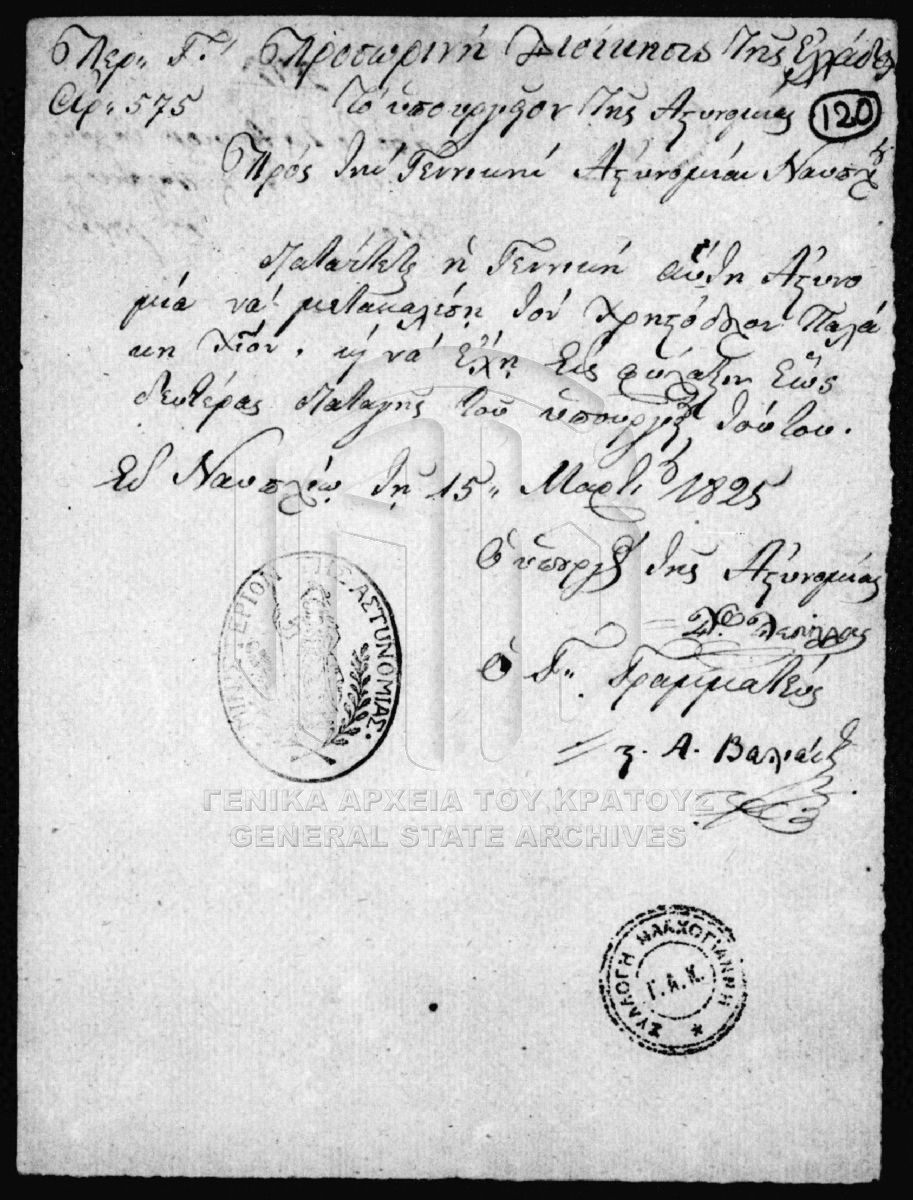 Περ. Γ. Προσωρινή Διοίκησις της Ελλάδος
Αρ. 575 Το υπουργείον της Αστυνομίας
120
Πρός την Γεννικήν Αστυνομίαν Ναυπλίου
διατάττεται η Γεννική αύτη Αστυνο
μία να μετακαλέση τον Χρηστόδουλον Παλά
κη Χίον, κ να έχη εις φύλαξιν έως
δευτέρας διαταγής του υπουργείου τούτου.
Εν Ναυπλίω τη 15 Μαρτίου 1825
Ο υπουργός της Αστυνομίας
Ο Γ. Γραμματεύς
ΜΙΝΙΣΤΕΡΙΟΝ ΤΗΣ ΑΣΤΥΝΟΜΙΑΣ.
ΓΕΝΙΚΑ ΑΡΧΕΙΑ ΤΟΥ ΚΡΑΤΟΥΣ
GENERAL STATE ARCHIVES
ΣΥΛΛΟΓΗ ΒΛΑΧΟΓΙΑΝΝΗ
Γ.Α.Κ.